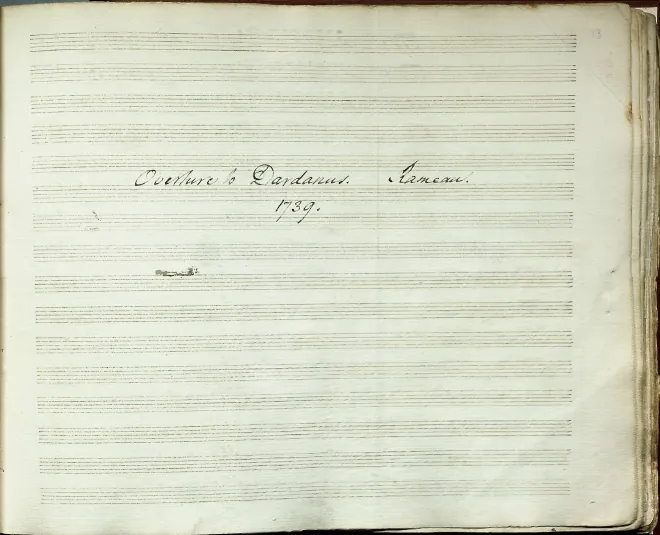 Overture to Dardanus. Rameau.
1739.